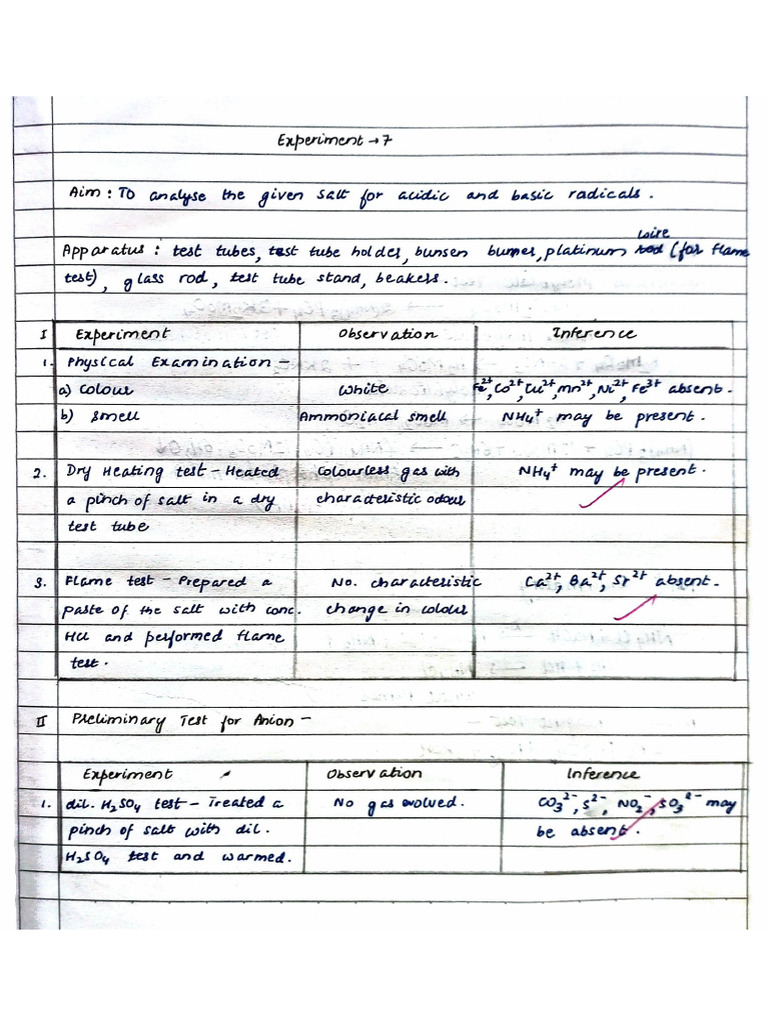 Experiment → 7
Aim : To analyse the given salt for acidic and basic radicals .
wire
Apparatus : test tubes, test tube holder, bunsen burner, platinum rod (for flame
test), glass rod, test tube stand, beakers.
I Experiment Observation Inference
1. Physical Examination –
a) Colour White Fe²⁺, Co²⁺, Cu²⁺, Mn²⁺, Ni²⁺, Fe³⁺ absent .
b) Smell Ammoniacal smell NH₄⁺ may be present .
2. Dry Heating test – Heated Colourless gas with NH₄⁺ may be present .
a pinch of salt in a dry characteristic odour
test tube
3. Flame test – Prepared a No. characteristic Ca²⁺, Ba²⁺, Sr²⁺ absent .
paste of the salt with conc. change in colour
HCl and performed flame
test .
II Preliminary Test for Anion –
Experiment Observation Inference
1. dil. H₂SO₄ test – Treated a No gas evolved . CO₃²⁻, S²⁻, NO₂⁻, SO₃²⁻ may
pinch of salt with dil. be absent .
H₂SO₄ test and warmed .